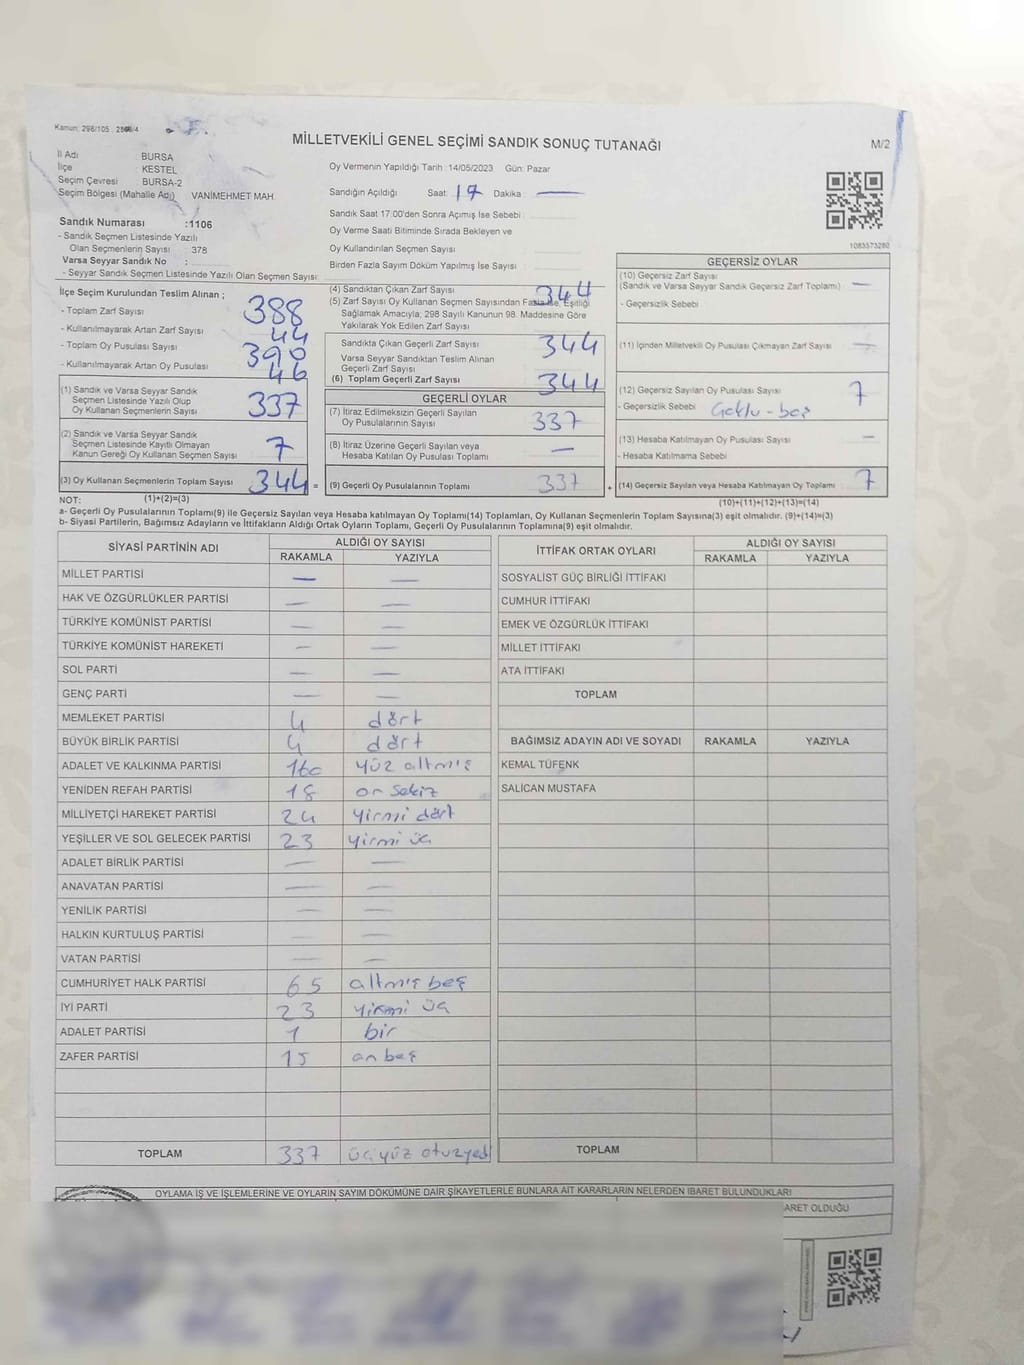 Kanun: 298/105
MİLLETVEKİLİ GENEL SEÇİMİ SANDIK SONUÇ TUTANAĞI
M/2
İl Adı BURSA
İlçe KESTEL
Seçim Çevresi BURSA-2
Seçim Bölgesi (Mahalle Adı) VANİMEHMET MAH.
Oy Vermenin Yapıldığı Tarih :14/05/2023 Gün: Pazar
Sandığın Açıldığı Saat: 17 Dakika —
Sandık Saat 17:00'den Sonra Açımış İse Sebebi
Oy Verme Saati Bitiminde Sırada Bekleyen ve
Oy Kullandırılan Seçmen Sayısı
Birden Fazla Sayım Döküm Yapılmış İse Sayısı
1083573260
Sandık Numarası :1106
- Sandık Seçmen Listesinde Yazılı
Olan Seçmenlerin Sayısı : 378
Varsa Seyyar Sandık No :
- Seyyar Sandık Seçmen Listesinde Yazılı Olan Seçmen Sayısı:
İlçe Seçim Kurulundan Teslim Alınan ;
- Toplam Zarf Sayısı 388
- Kullanılmayarak Artan Zarf Sayısı 44
- Toplam Oy Pusulası Sayısı 390
- Kullanılmayarak Artan Oy Pusulası 46
(1) Sandık ve Varsa Seyyar Sandık
Seçmen Listesinde Yazılı Olup
Oy Kullanan Seçmenlerin Sayısı 337
(2) Sandık ve Varsa Seyyar Sandık
Seçmen Listesinde Kayıtlı Olmayan
Kanun Gereği Oy Kullanan Seçmen Sayısı 7
(3) Oy Kullanan Seçmenlerin Toplam Sayısı 344 =
(4) Sandıktan Çıkan Zarf Sayısı 344
(5) Zarf Sayısı Oy Kullanan Seçmen Sayısından Fazla İse, Eşitliği
Sağlamak Amacıyla; 298 Sayılı Kanunun 98. Maddesine Göre
Yakılarak Yok Edilen Zarf Sayısı
Sandıkta Çıkan Geçerli Zarf Sayısı 344
Varsa Seyyar Sandıktan Teslim Alınan
Geçerli Zarf Sayısı
(6) Toplam Geçerli Zarf Sayısı 344
GEÇERLİ OYLAR
(7) İtiraz Edilmeksizin Geçerli Sayılan
Oy Pusulalarının Sayısı 337
(8) İtiraz Üzerine Geçerli Sayılan veya
Hesaba Katılan Oy Pusulası Toplamı —
(9) Geçerli Oy Pusulalarının Toplamı 337 +
GEÇERSİZ OYLAR
(10) Geçersiz Zarf Sayısı
(Sandık ve Varsa Seyyar Sandık Geçersiz Zarf Toplamı) —
- Geçersizlik Sebebi
(11) İçinden Milletvekili Oy Pusulası Çıkmayan Zarf Sayısı —
(12) Geçersiz Sayılan Oy Pusulası Sayısı 7
- Geçersizlik Sebebi
(13) Hesaba Katılmayan Oy Pusulası Sayısı —
- Hesaba Katılmama Sebebi
(14) Geçersiz Sayılan veya Hesaba Katılmayan Oy Toplamı 7
NOT: (1)+(2)=(3)
(10)+(11)+(12)+(13)=(14)
a- Geçerli Oy Pusulalarının Toplamı(9) ile Geçersiz Sayılan veya Hesaba katılmayan Oy Toplamı(14) Toplamları, Oy Kullanan Seçmenlerin Toplam Sayısına(3) eşit olmalıdır. (9)+(14)=(3)
b- Siyasi Partilerin, Bağımsız Adayların ve İttifakların Aldığı Ortak Oyların Toplamı, Geçerli Oy Pusulalarının Toplamına(9) eşit olmalıdır.
SİYASİ PARTİNİN ADI ALDIĞI OY SAYISI
RAKAMLA YAZIYLA
MİLLET PARTİSİ — —
HAK VE ÖZGÜRLÜKLER PARTİSİ — —
TÜRKİYE KOMÜNİST PARTİSİ — —
TÜRKİYE KOMÜNİST HAREKETİ — —
SOL PARTİ — —
GENÇ PARTİ — —
MEMLEKET PARTİSİ 4 dört
BÜYÜK BİRLİK PARTİSİ 4 dört
ADALET VE KALKINMA PARTİSİ 160 yüz altmış
YENİDEN REFAH PARTİSİ 18 on sekiz
MİLLİYETÇİ HAREKET PARTİSİ 24 yirmi dört
YEŞİLLER VE SOL GELECEK PARTİSİ 23 yirmi üç
ADALET BİRLİK PARTİSİ — —
ANAVATAN PARTİSİ — —
YENİLİK PARTİSİ — —
HALKIN KURTULUŞ PARTİSİ — —
VATAN PARTİSİ — —
CUMHURİYET HALK PARTİSİ 65 altmış beş
İYİ PARTİ 23 yirmi üç
ADALET PARTİSİ 1 bir
ZAFER PARTİSİ 15 on beş
TOPLAM 337 üçyüz otuzyedi
İTTİFAK ORTAK OYLARI ALDIĞI OY SAYISI
RAKAMLA YAZIYLA
SOSYALİST GÜÇ BİRLİĞİ İTTİFAKI
CUMHUR İTTİFAKI
EMEK VE ÖZGÜRLÜK İTTİFAKI
MİLLET İTTİFAKI
ATA İTTİFAKI
TOPLAM
BAĞIMSIZ ADAYIN ADI VE SOYADI RAKAMLA YAZIYLA
KEMAL TÜFENK
SALİCAN MUSTAFA
TOPLAM
OYLAMA İŞ VE İŞLEMLERİNE VE OYLARIN SAYIM DÖKÜMÜNE DAİR ŞİKAYETLERLE BUNLARA AİT KARARLARIN NELERDEN İBARET BULUNDUKLARI
ARET OLDUĞU